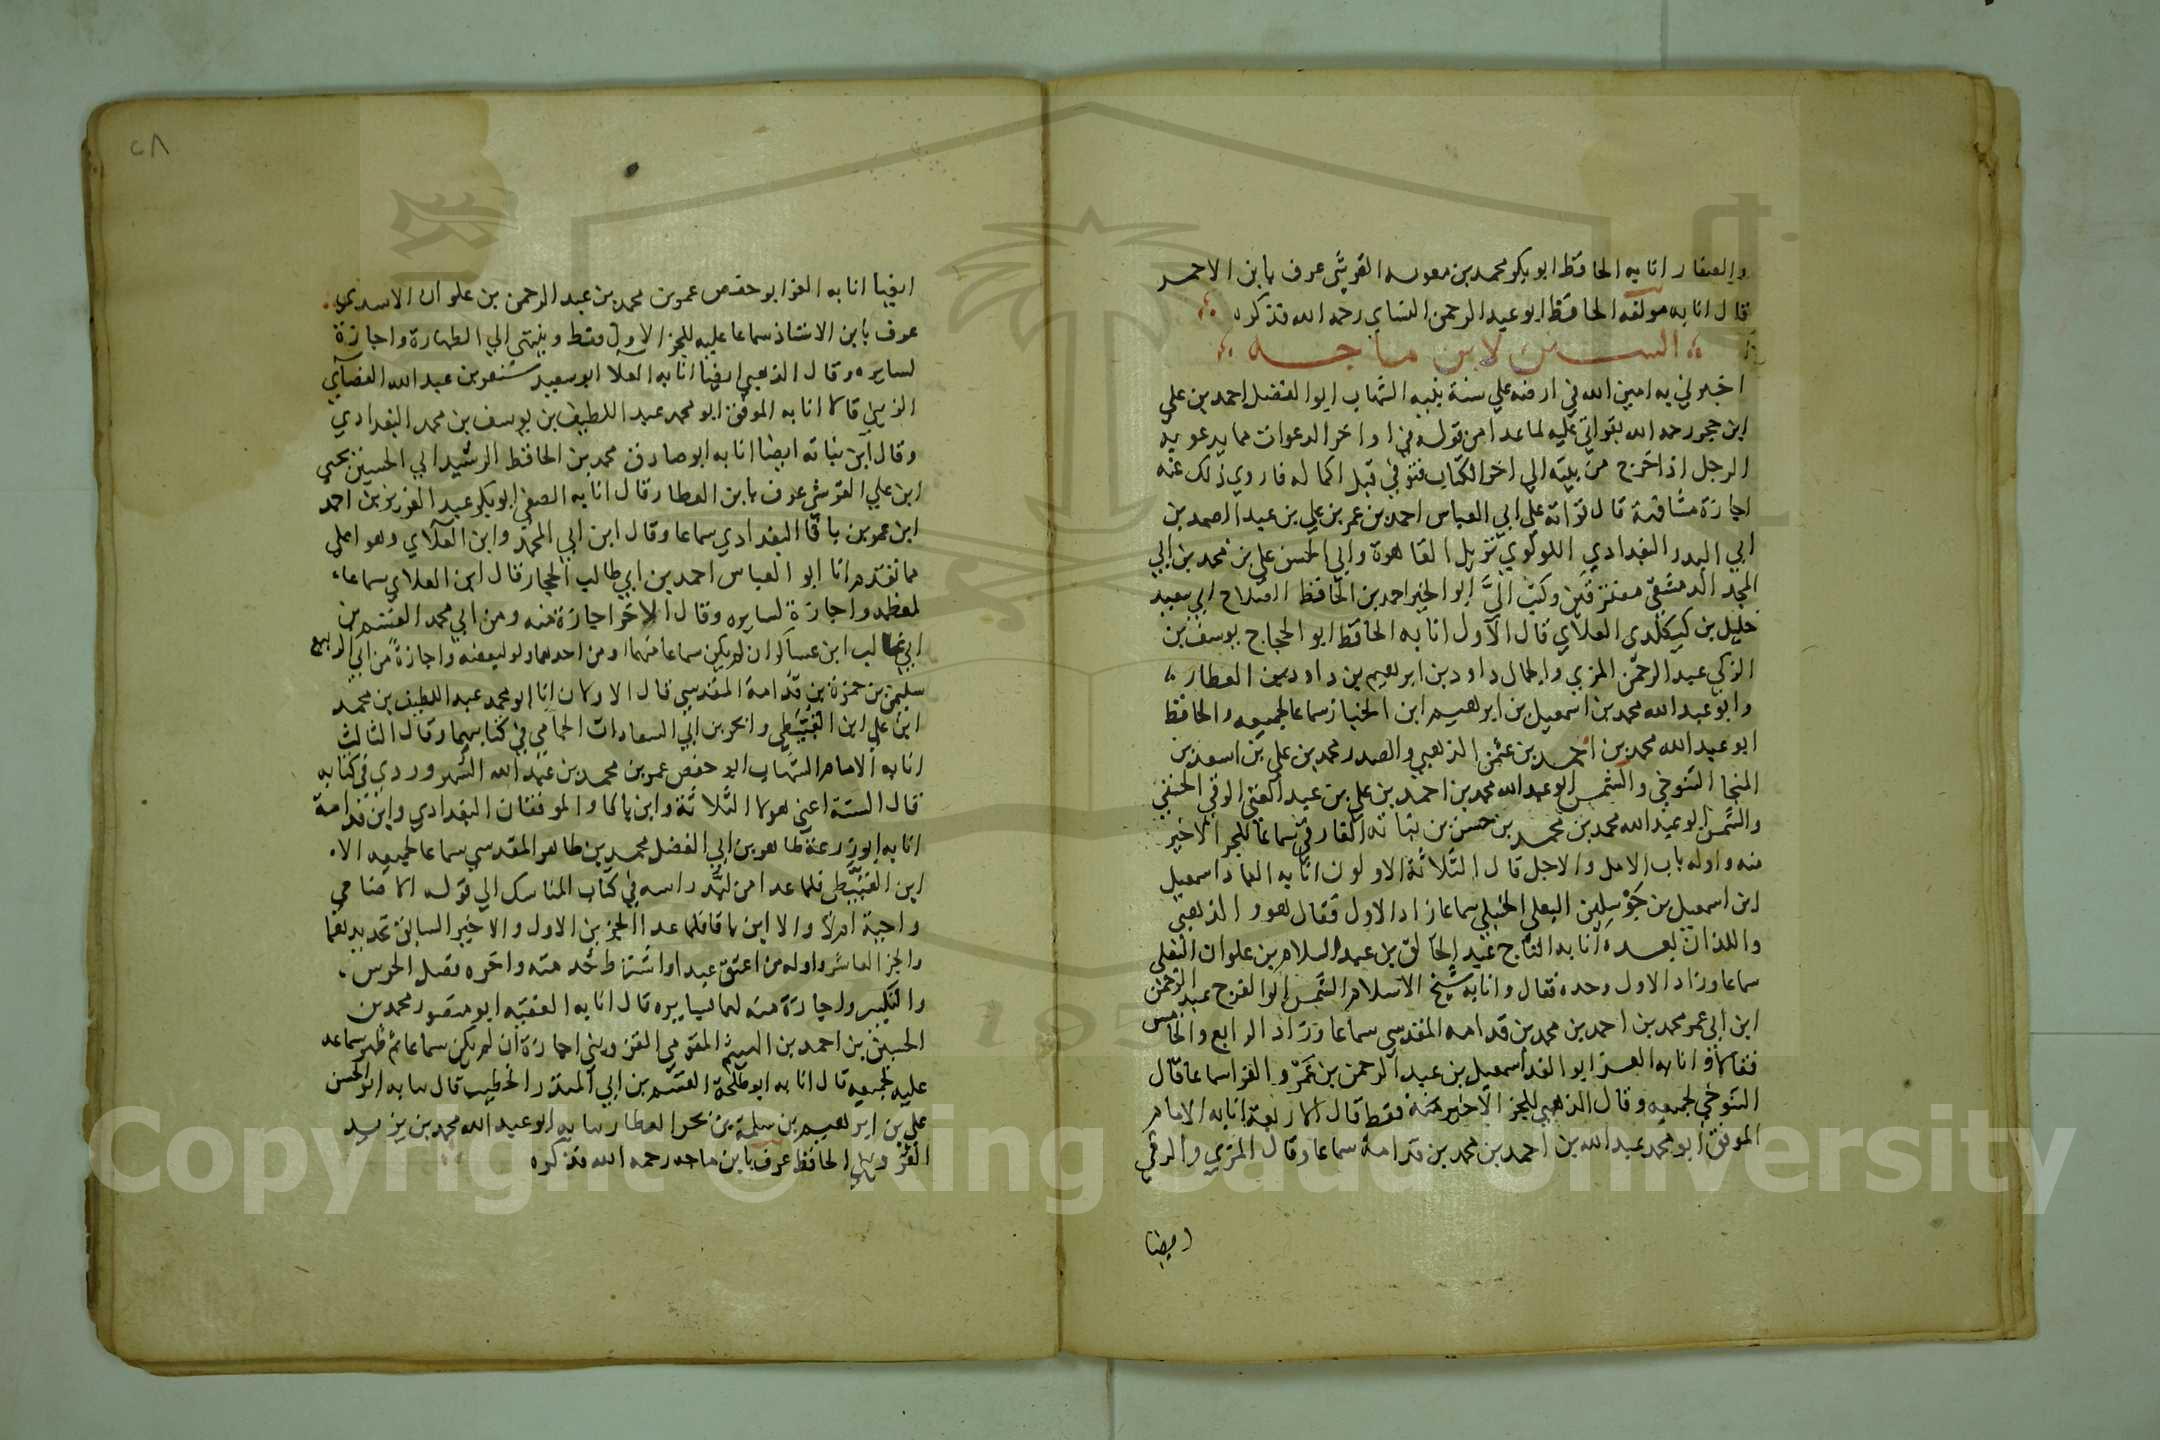 والصفار انا به الحافظ ابو بكر محمد بن معويه القرشى عرف بابن الاحمر
قال انا به مولفه الحافظ ابو عبد الرحمن النساي رحمه الله فذكره
السنن لابن ماجه
اخبرني به امين الله في ارضه علي سنة نبيه الشهاب ابو الفضل احمد بن علي
ابن حجر رحمه الله بقراتي عليه لما عدا من قوله في اواخر الدعوات ما يدعو به
الرجل اذا خرج من بيته الي اخر الكتاب فتوفي قبل اكماله فاروي ذلك عنه
اجازة مشافهة قال قراته علي ابي العباس احمد بن عمر بن علي بن عبد الصمد بن
ابي البدر البغدادي اللولوي نزيل القاهرة وابي الحسن علي بن محمد بن ابي
المجد الدمشقي مفترقين وكتب الي ابو الخير احمد بن الحافظ الصلاح ابي سعيد
خليل بن كيكلدي العلاي قال الاول انا به الحافظ ابو الحجاج يوسف بن
الزكي عبد الرحمن المزي والجمال داود بن ابراهيم بن داود بن العطار
وابو عبد الله محمد بن اسمعيل بن ابراهيم ابن الخباز سماعا لجميعه والحافظ
ابو عبد الله محمد بن احمد بن عثمن الذهبي والصدر محمد بن علي بن اسعد بن
المنجا التنوخي والشمس ابو عبد الله محمد بن احمد بن علي بن عبد الغني الرقي الحنفي
والشمس ابو عبد الله محمد بن محمد بن حسن بن نباته الفارقي سماعا للجز الاخير
منه واوله باب الامل والاجل قال الثلاثة الاولون انا به العماد اسمعيل
ابن اسمعيل بن جوسلين البعلي الحنبلي سماعا زاد الاول فقال هو والذهبي
واللذان بعده انا به التاج عبد الخالق بن عبد السلام بن علوان البعلي
سماعا وزاد الاول وحده فقال وانا به شيخ الاسلام الشمس ابو الفرج عبد الرحمن
ابن ابي عمر محمد بن احمد بن محمد بن قدامه المقدسي سماعا وزاد الرابع والخامس
فقالا وانا به العز ابو الفدا اسمعيل بن عبد الرحمن بن عمرو الفرا سماعا قال
التنوخي لجميعه وقال الذهبي للجز الاخير منه فقط قال الاربعة انا به الامام
الموفق ابو محمد عبد الله بن احمد بن محمد بن قدامة سماعا وقال المزي والرقي
ايضا
٢٨
ايضا انا به العز ابو حفص عمر بن محمد بن عبد الرحمن بن علوان الاسدي
عرف بابن الاستاذ سماعا عليه للجز الاول فقط وينتهي الي الطهارة واجازة
لسايره وقال الذهبي ايضا انا به العلا ابو سعيد سنقر بن عبد الله القضاي
الزيني قالا انا به الموفق ابو محمد عبد اللطيف بن يوسف بن محمد البغدادي
وقال ابن نباته ايضا انا به ابو صادق محمد بن الحافظ الرشيد ابي الحسين يحيى
ابن علي القرشي عرف بابن العطار قال انا به الصفي ابو بكر عبد العزيز بن احمد
ابن عمر بن باقا البغدادي سماعا وقال ابن ابي المجد وابن العلاي وهو اعلي
مما تقدم انا ابو العباس احمد بن ابي طالب الحجار قال ابن العلاي سماعا
لمعظمه واجازة لسايره وقال الاخر اجازة منه ومن ابي محمد القسم بن
ابي غالب ابن عساكر ان لم يكن سماعا منهما او من احدهما ولو لبعضه واجازة من ابي الربيع
سليمن بن حمزة بن قدامة المقدسي قال الاولان انا ابو محمد عبد اللطيف بن محمد
ابن علي ابن القبيطي وانجر بن ابي السعادات الحمامي في كتابيهما وقال الثالث
انا به الامام الشهاب ابو حفص عمر بن محمد بن عبد الله السهروردي في كتابه
قال الستة اعني هولا الثلاثة وابن باقا والموفقان البغدادي وابن قدامة
انا به ابو زرعة طاهر بن ابي الفضل محمد بن طاهر المقدسي سماعا لجميعه الا
ابن القبيطي فلما عدا من لبد راسه في كتاب المناسك الي قوله الاضاحي
واجبة ام لا والا ابن باقا فلما عدا الجزين الاول والاخير السابق تحديدهما
والجز العاشر واوله من اعتق عبدا واشترط خدمته واخره فضل الحرس
والتكبير واجازة منه لهما لسايره قال انا به الفقيه ابو منصور محمد بن
الحسين بن احمد بن الهيثم المقومي القزويني اجازة ان لم يكن سماعا ثم ظهر سماعه
عليه لجميعه قال انا به ابو طلحة القسم بن ابي المنذر الخطيب قال ثنا به ابو الحسن
علي بن ابراهيم بن سلمة بن بحر العطار ثنا به ابو عبد الله محمد بن يزيد
القزويني الحافظ عرف بابن ماجه رحمه الله فذكره
Copyright © King Saud University